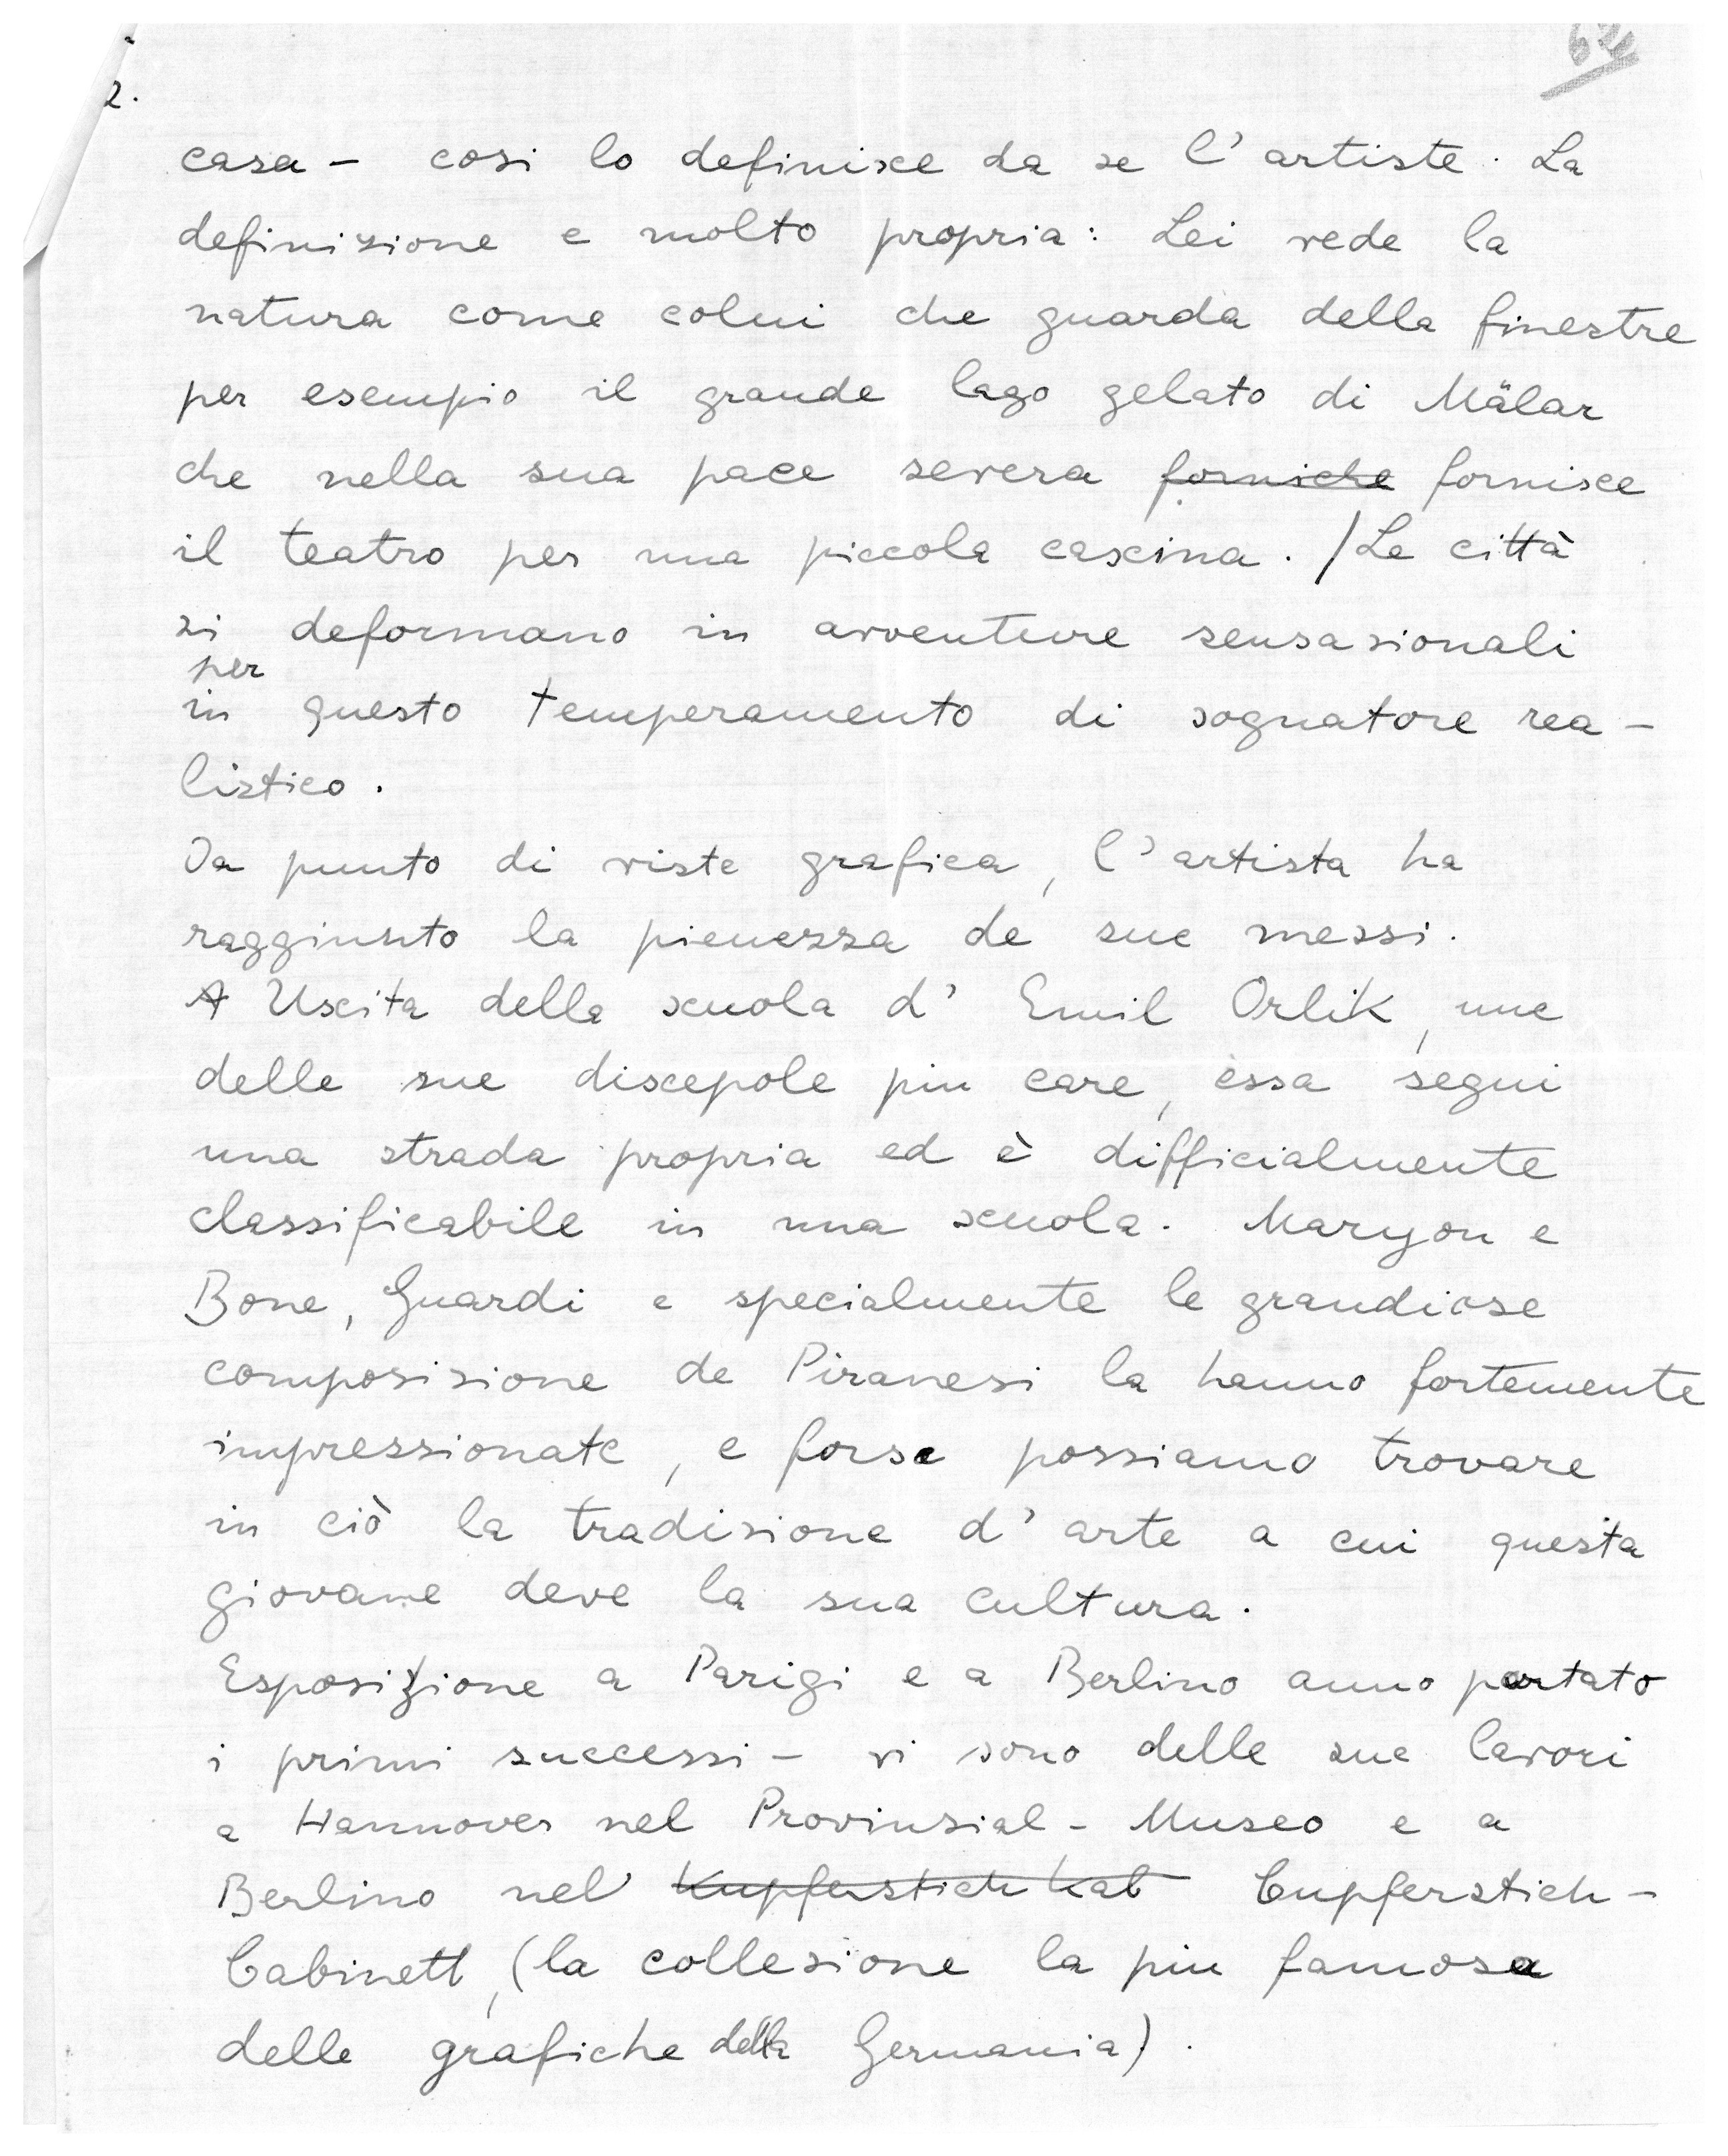 62
2.
casa – cosi lo definisce da se l'artiste. La
definizione e molto propria: Lei vede la
natura come colui che guarda della finestre
per esempio il grande lago gelato di Mälar
che nella sua pace severa forniche fornisce
il teatro per una piccola cascina. / Le città
si deformano in avventure sensazionali
per
in questo temperamento di sognatore rea-
listico.
Da punto di viste grafica, l'artista ha
raggiunto la pienezza de sue messi.
A Uscita della scuola d' Emil Orlik, une
delle sue discepole piu care, essa segui
una strada propria ed è difficialmente
classificabile in una scuola. Maryon e
Bone, Guardi e specialmente le grandiose
composizione de Piranesi la hanno fortemente
impressionate, e forse possiamo trovare
in ciò la tradizione d' arte a cui questa
giovane deve la sua cultura.
Esposizione a Parigi e a Berlino anno portato
i primi successi – vi sono delle sue lavori
a Hannover nel Provinzial - Museo e a
Berlino nel Kupferstich Kab Cupferstich-
Cabinett, (la collezione la piu famosa
delle grafiche della Germania).